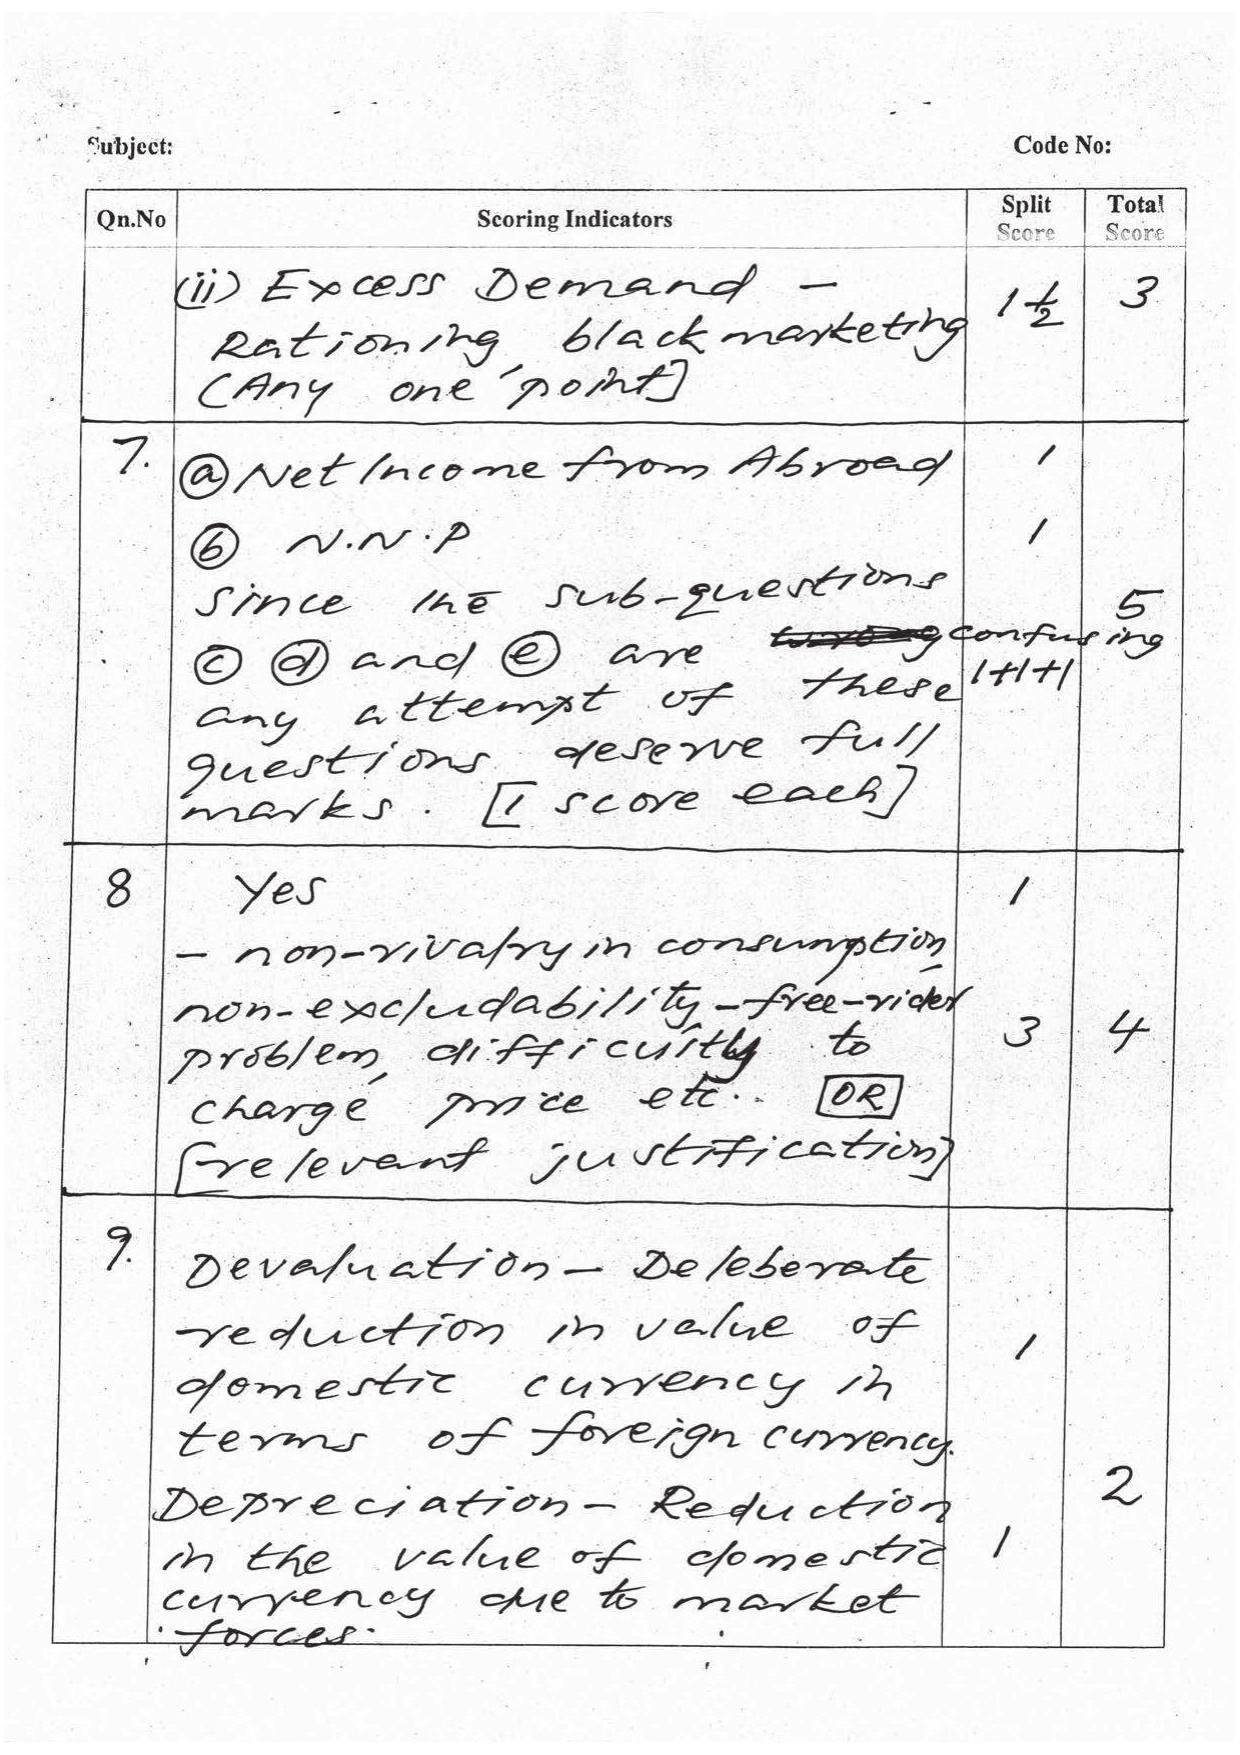 Subject: Code No:
Qn.No Scoring Indicators Split Score Total Score
(ii) Excess Demand – 1½ 3
Rationing, black marketing
(Any one point]
7. ⓐ Net Income from Abroad 1
ⓑ N.N.P 1
Since the sub-questions 5
ⓒ ⓓ and ⓔ are confusing
any attempt of these 1+1+1
questions deserve full
marks. [1 score each]
8 Yes 1
– non-rivalry in consumption,
non-excludability – free-rider
problem, difficultly to 3 4
charge price etc.. OR
[relevant justification]
9. Devaluation – Deleberate
reduction in value of 1
domestic currency in
terms of foreign currency.
Depreciation – Reduction 2
in the value of domestic 1
currency due to market
forces.